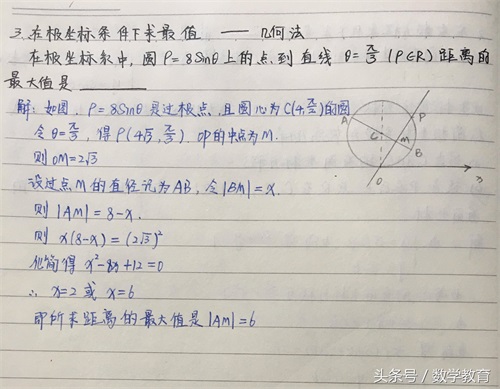 3. 在极坐标条件下求最值 —— 几何法
在极坐标系中, 圆 ρ=8sinθ 上的点到直线 θ=π/3 (ρ∈R) 距离的
最大值是 ________
解: 如图, ρ=8sinθ 是过极点, 且圆心为 C(4,π/2) 的圆
令 θ=π/3, 得 P(4√3, π/3). OP的中点为 M.
则 OM=2√3
设过点 M 的直径记为 AB, 令 |BM|=x.
则 |AM|=8-x.
则 x(8-x)=(2√3)²
化简得 x²-8x+12=0
∴ x=2 或 x=6
即所求距离的最大值是 |AM|=6
A
P
C
M
B
O
x
头条号 / 数学教育